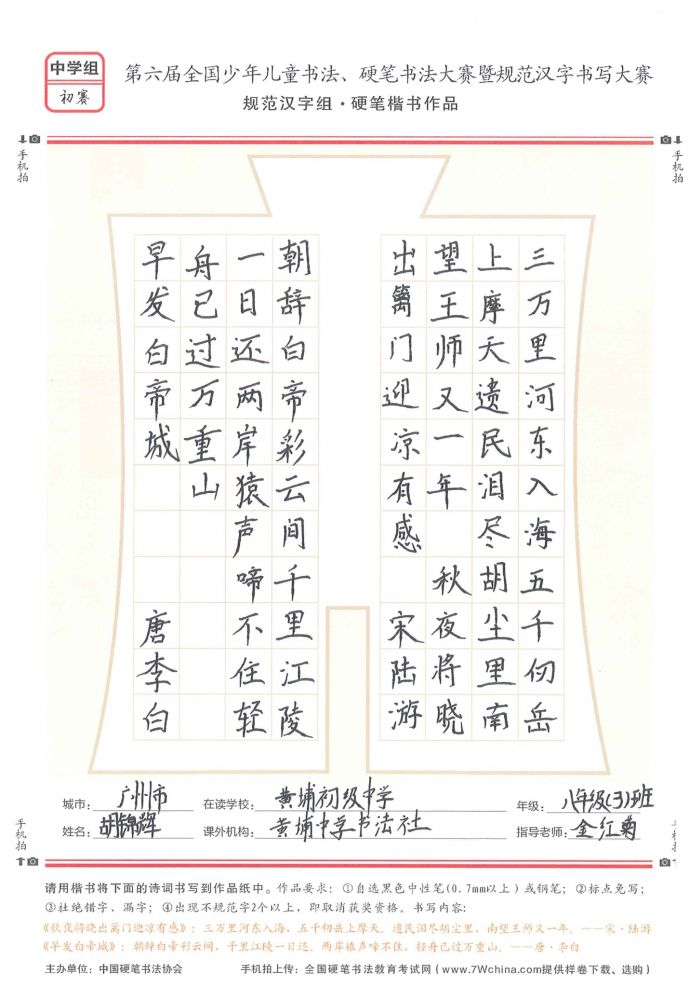 中学组
初赛
第六届全国少年儿童书法、硬笔书法大赛暨规范汉字书写大赛
规范汉字组·硬笔楷书作品
手机拍
手机拍
三万里河东入海五千仞岳
上摩天遗民泪尽胡尘里南
望王师又一年 秋夜将晓
出篱门迎凉有感 宋陆游
朝辞白帝彩云间千里江陵
一日还两岸猿声啼不住轻
舟已过万重山
早发白帝城 唐李白
城市：广州市 在读学校：黄埔初级中学 年级：八年级(3)班
姓名：胡锦辉 课外机构：黄埔中学书法社 指导老师：金红菊
手机拍
手机拍
请用楷书将下面的诗词书写到作品纸中。作品要求：①自选黑色中性笔(0.7mm以上)或钢笔；②标点免写；
③杜绝错字、漏字；④出现不规范字2个以上，即取消获奖资格。书写内容：
《秋夜将晓出篱门迎凉有感》：三万里河东入海，五千仞岳上摩天。遗民泪尽胡尘里，南望王师又一年。——宋·陆游
《早发白帝城》：朝辞白帝彩云间，千里江陵一日还。两岸猿声啼不住，轻舟已过万重山。——唐·李白
主办单位：中国硬笔书法协会 手机拍上传：全国硬笔书法教育考试网（www.7Wchina.com提供样卷下载、选购）